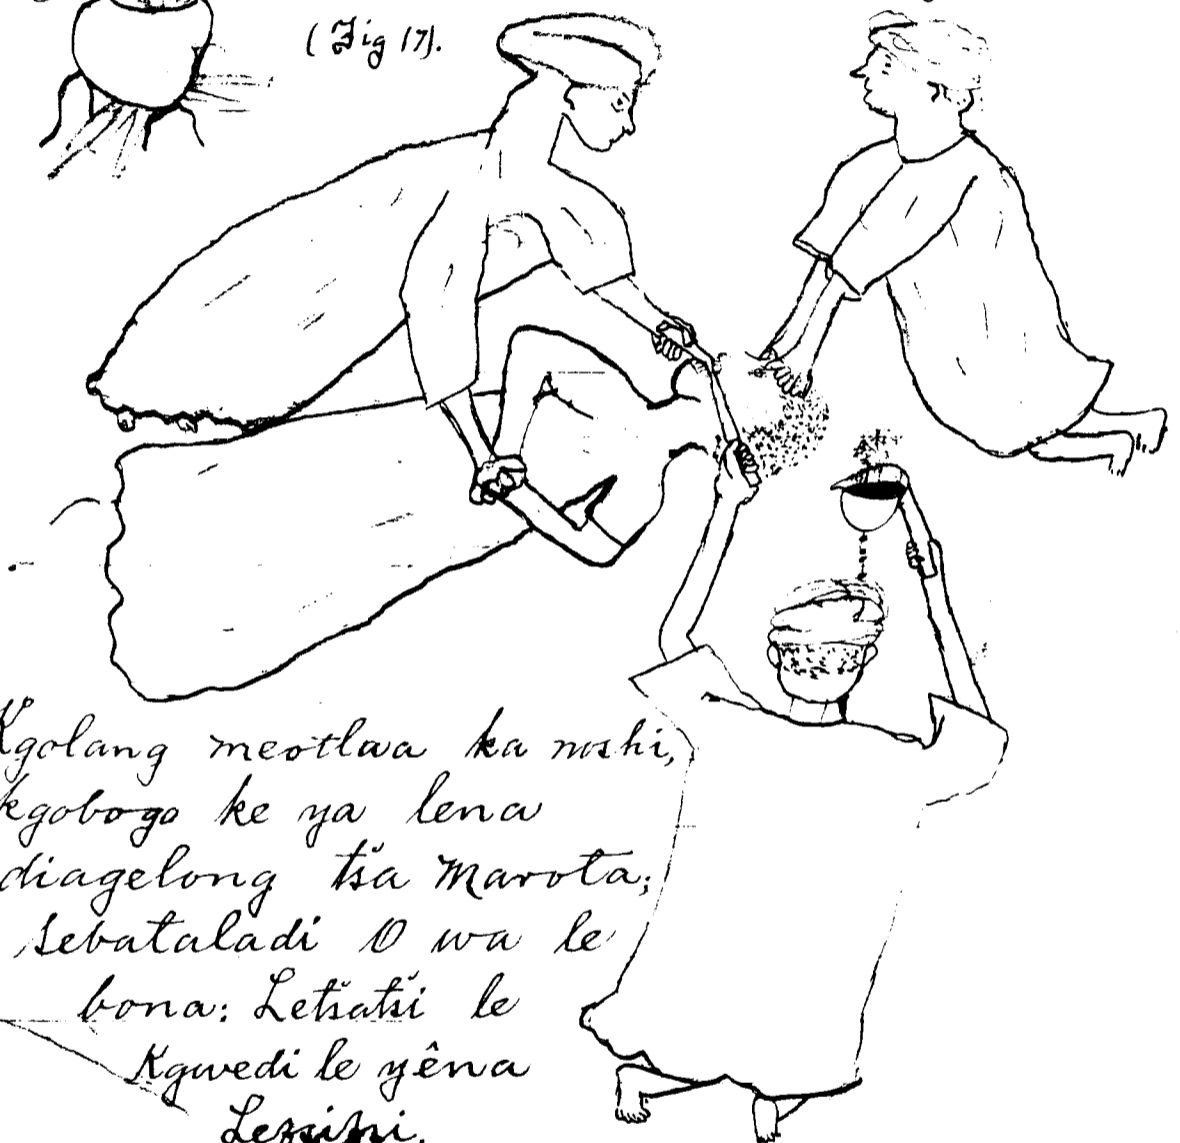 (Fig 17).
Kgolang meotlwa ka noshi,
kgobogo ke ya lena
diagelong tša Marota;
Sebataladi O wa le
bona: Letšatši le
Kgwedi le yêna